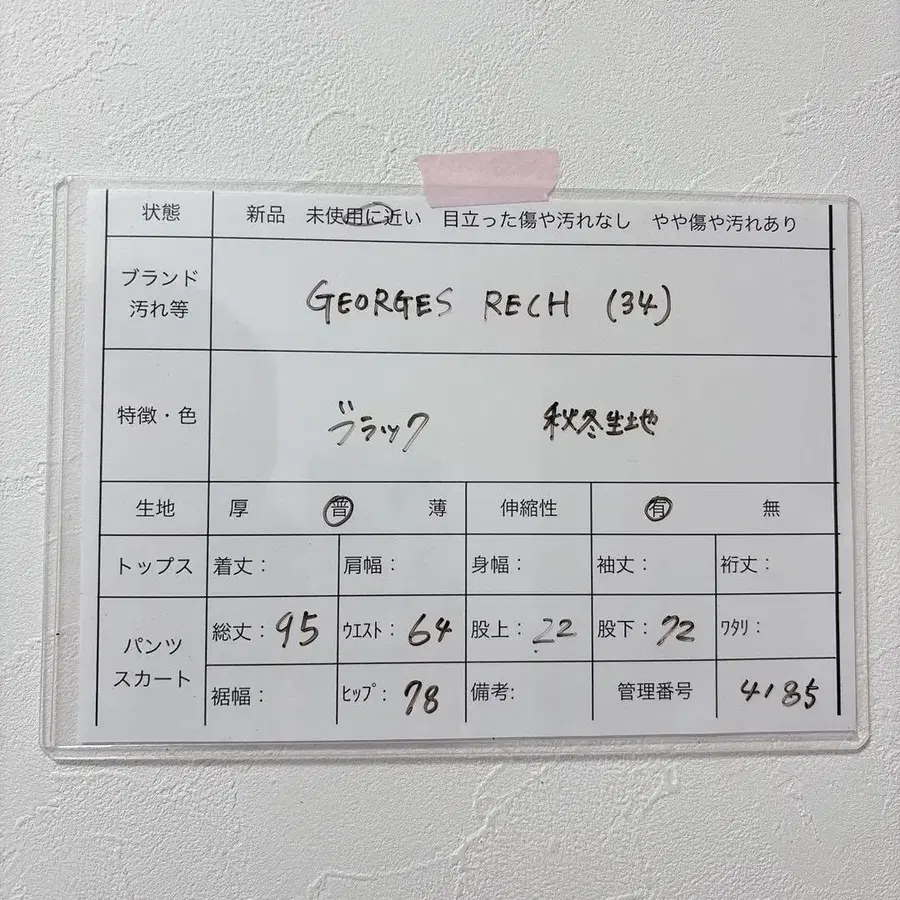 状態 新品 未使用に近い 目立った傷や汚れなし やや傷や汚れあり
ブランド
汚れ等
GEORGES RECH (34)
特徴・色 ブラック 秋冬生地
生地 厚 普 薄 伸縮性 有 無
トップス 着丈: 肩幅: 身幅: 袖丈: 裄丈:
パンツ
スカート
総丈: 95 ウエスト: 64 股上: 22 股下: 72 ワタリ:
裾幅: ヒップ: 78 備考: 管理番号 4185